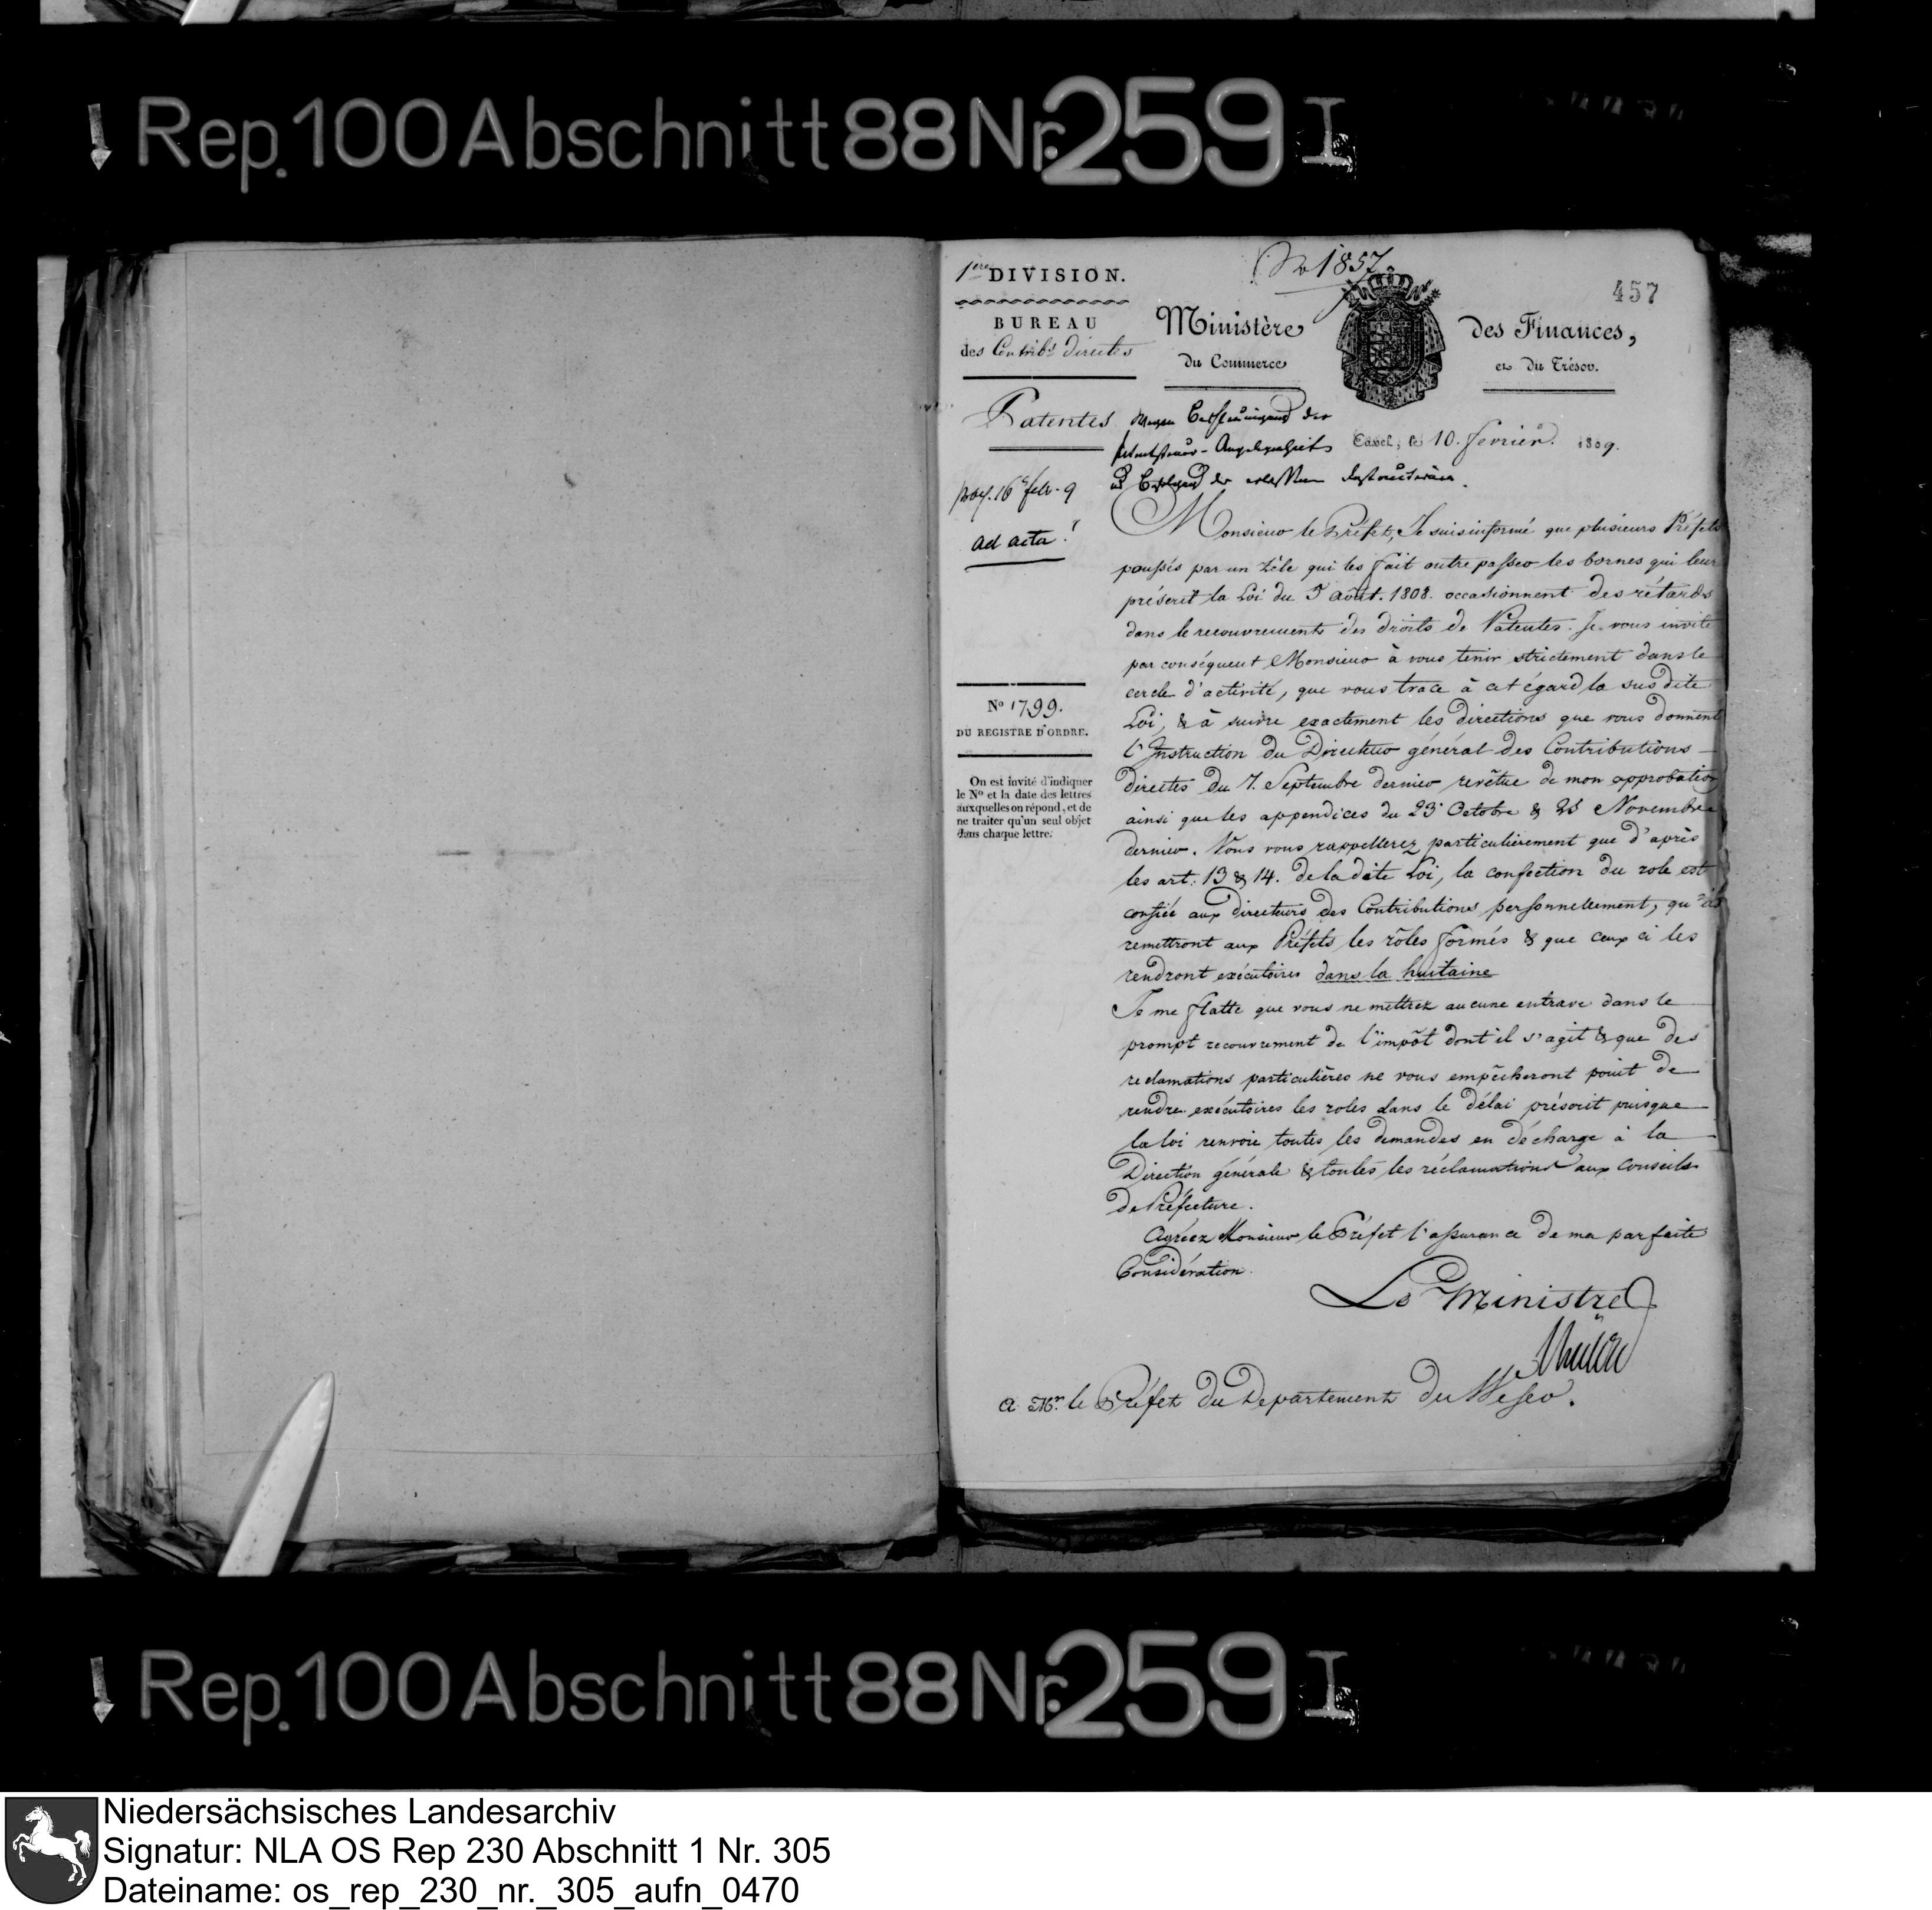 Rep. 100 Abschnitt 88 Nr. 259 I
1ère DIVISION.
BUREAU
des Contribs directes
No 1857
457
Ministère des Finances,
du Commerce et du Trésor.
Patentes
wegen Beschleunigung der
Patentsteuer-Angelegenheit
Cassel, le 10. fevrier. 1809.
16 febr. 9
ad acta
No 1799.
DU REGISTRE D'ORDRE.
On est invité d'indiquer
le No et la date des lettres
auxquelles on répond, et de
ne traiter qu'un seul objet
dans chaque lettre.
Monsieur le Préfet, Je suis informé que plusieurs Préfets
poussés par un zèle qui les fait outre passer les bornes qui leur
préscrit la Loi du 5 Août. 1808. occasionnent des rétards
dans le recouvrement des droits de Patentes. Je vous invite
par conséquent Monsieur à vous tenir strictement dans le
cercle d'activité, que vous trace à cet égard la sus dite
Loi, & à suivre exactement les directions que vous donnent
l'Instruction du Directeur général des Contributions
directes du 7. Septembre dernier revêtue de mon approbation
ainsi que les appendices du 23 Octobre & 25 Novembre
dernier. Vous vous rappellerez particulièrement que d'après
les art. 13 & 14. de la dite Loi, la confection du role est
confiée aux directeurs des Contributions personnellement, qu'ils
remettront aux Préfets les rôles formés & que ceux ci les
rendront exécutoires dans la huitaine
Je me flatte que vous ne mettrez aucune entrave dans le
prompt recouvrement de l'impôt dont il s'agit & que des
reclamations particulières ne vous empêcheront point de
rendre exécutoires les roles dans le délai préscrit puisque
la loi renvoie toutes les demandes en décharge à la
Direction générale & toutes les réclamations aux Conseils
de Préfecture.
Agréez Monsieur le Préfet l'assurance de ma parfaite
Considération.
Le Ministre
a Mr. le Préfet du Departement du Weser.
Rep. 100 Abschnitt 88 Nr. 259 I
Niedersächsisches Landesarchiv
Signatur: NLA OS Rep 230 Abschnitt 1 Nr. 305
Dateiname: os_rep_230_nr._305_aufn_0470